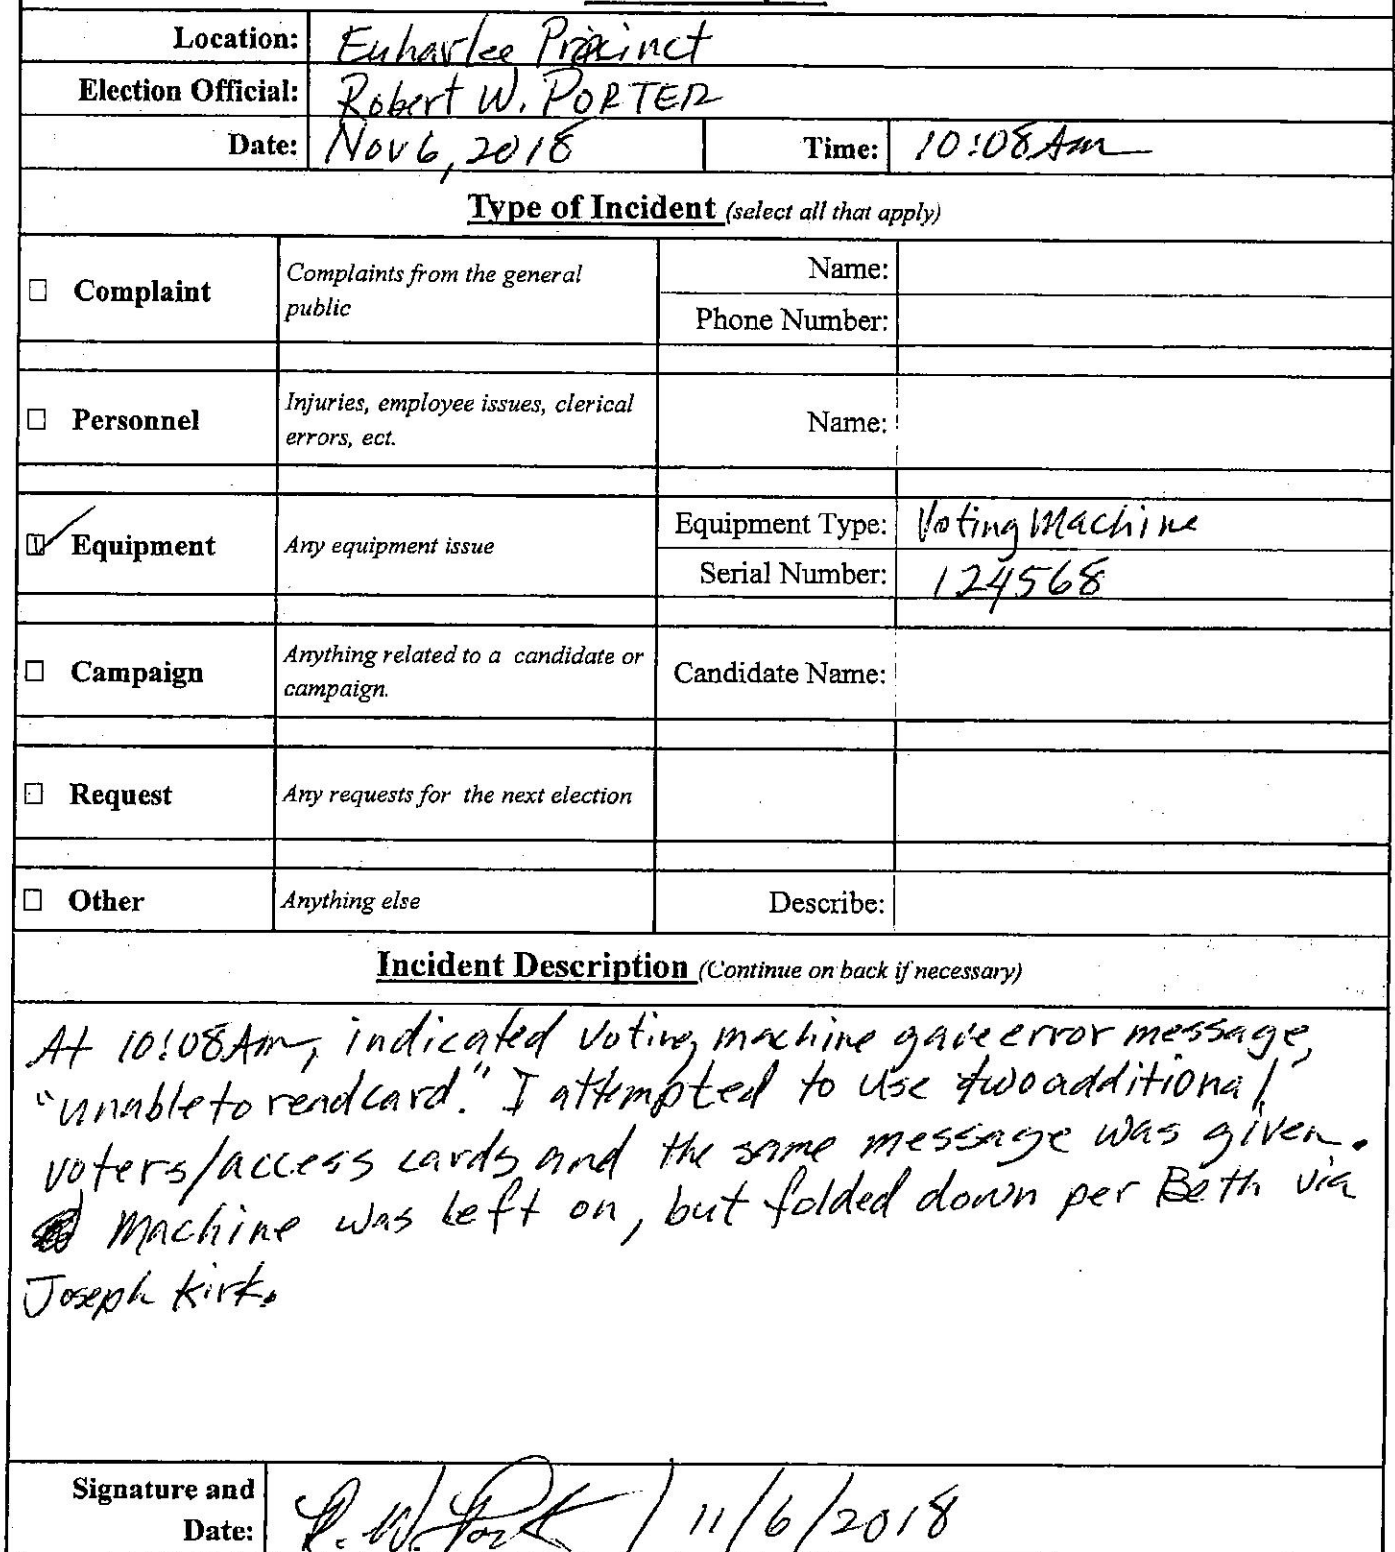 Location: Euharlee Precinct
Election Official: Robert W. PORTER
Date: Nov 6, 2018 Time: 10:08 Am
Type of Incident (select all that apply)
☐ Complaint Complaints from the general public Name:
Phone Number:
☐ Personnel Injuries, employee issues, clerical errors, ect. Name:
☑ Equipment Any equipment issue Equipment Type: Voting Machine
Serial Number: 124568
☐ Campaign Anything related to a candidate or campaign. Candidate Name:
☐ Request Any requests for the next election
☐ Other Anything else Describe:
Incident Description (Continue on back if necessary)
At 10:08 Am, indicated voting machine gave error message,
"unable to read card." I attempted to use two additional
voters/access cards and the same message was given.
Machine was left on, but folded down per Beth via
Joseph Kirk.
Signature and Date: R. W. Porter / 11/6/2018